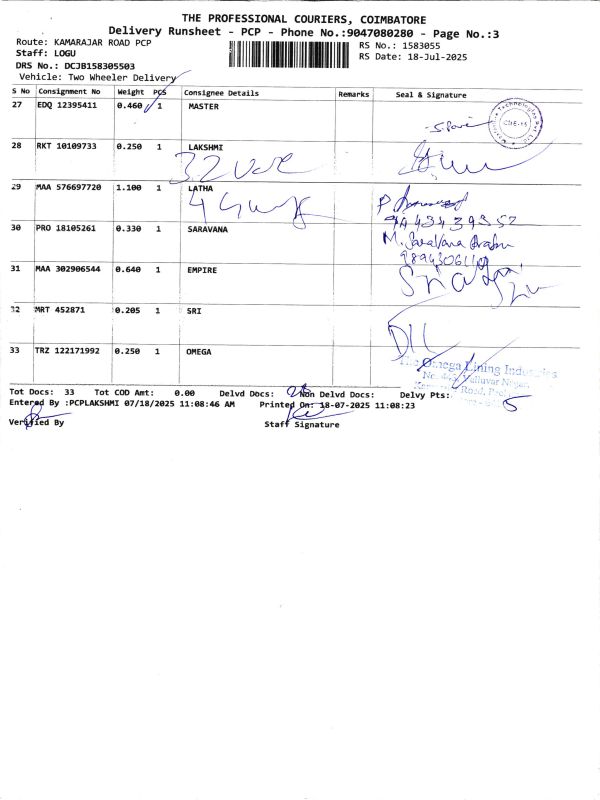 THE PROFESSIONAL COURIERS, COIMBATORE
Delivery Runsheet - PCP - Phone No.:9047080280 - Page No.:3
Route: KAMARAJAR ROAD PCP
Staff: LOGU
DRS No.: DCJB158305503
Vehicle: Two Wheeler Delivery
RS No.: 1583055
RS Date: 18-Jul-2025
S No Consignment No Weight PCS Consignee Details Remarks Seal & Signature
27 EDQ 12395411 0.460 1 MASTER
28 RKT 10109733 0.250 1 LAKSHMI
29 MAA 576697720 1.100 1 LATHA
9443439352
30 PRO 18105261 0.330 1 SARAVANA
M. Saravana
31 MAA 302906544 0.640 1 EMPIRE
32 MRT 452871 0.205 1 SRI
33 TRZ 122171992 0.250 1 OMEGA
The Omega Lining Industries
Valluvar Nagar,
Tot Docs: 33 Tot COD Amt: 0.00 Delvd Docs: Non Delvd Docs: Delvy Pts: 5
Entered By :PCPLAKSHMI 07/18/2025 11:08:46 AM Printed On: 18-07-2025 11:08:23
Verified By Staff Signature